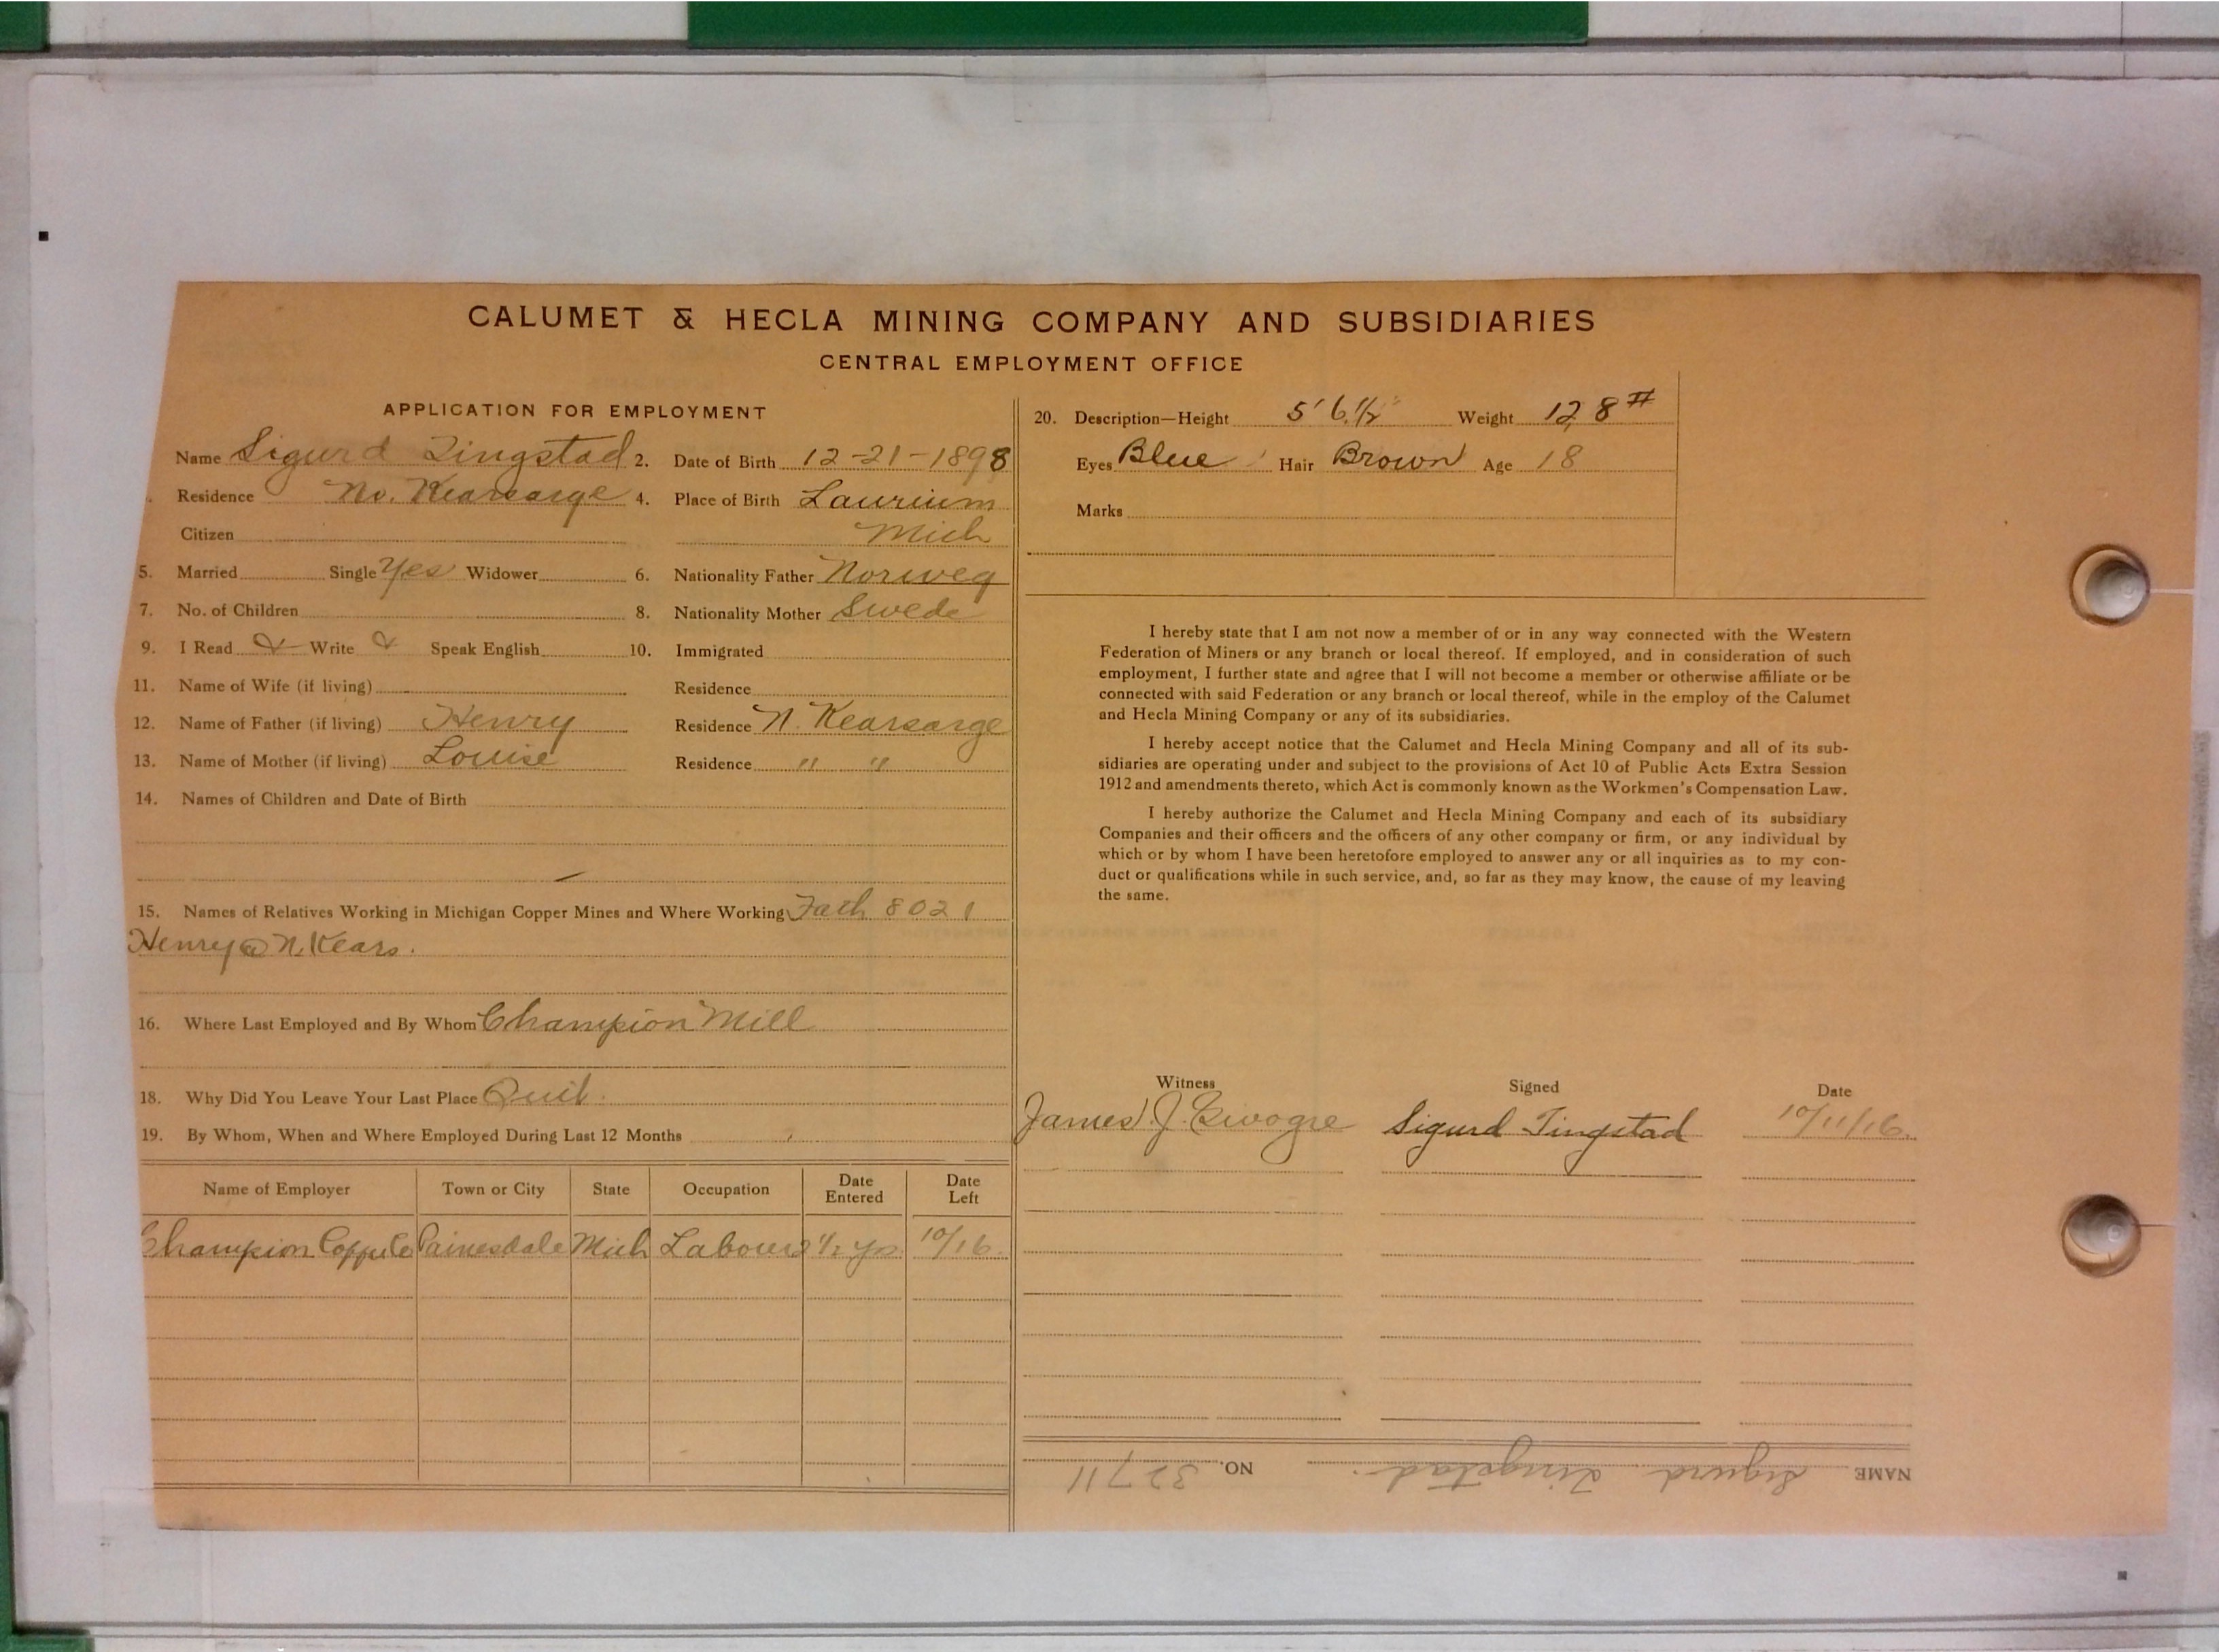 CALUMET & HECLA MINING COMPANY AND SUBSIDIARIES
CENTRAL EMPLOYMENT OFFICE
APPLICATION FOR EMPLOYMENT
Name Sigurd Tingstad 2. Date of Birth 12-21-1898
Residence No. Kearsarge 4. Place of Birth Laurium
Citizen Mich
5. Married Single Yes Widower 6. Nationality Father Norweg
7. No. of Children 8. Nationality Mother Swede
9. I Read Write Speak English 10. Immigrated
11. Name of Wife (if living) Residence
12. Name of Father (if living) Henry Residence N. Kearsarge
13. Name of Mother (if living) Louise Residence " "
14. Names of Children and Date of Birth
15. Names of Relatives Working in Michigan Copper Mines and Where Working Fath 8021
Henry @ N. Kears.
16. Where Last Employed and By Whom Champion Mill
18. Why Did You Leave Your Last Place Quit.
19. By Whom, When and Where Employed During Last 12 Months
Name of Employer Town or City State Occupation Date Entered Date Left
Champion Painesdale Mich Labour 1/2 yr 10/16
20. Description—Height 5' 6 1/2" Weight 128#
Eyes Blue Hair Brown Age 18
Marks
I hereby state that I am not now a member of or in any way connected with the Western
Federation of Miners or any branch or local thereof. If employed, and in consideration of such
employment, I further state and agree that I will not become a member or otherwise affiliate or be
connected with said Federation or any branch or local thereof, while in the employ of the Calumet
and Hecla Mining Company or any of its subsidiaries.
I hereby accept notice that the Calumet and Hecla Mining Company and all of its sub-
sidiaries are operating under and subject to the provisions of Act 10 of Public Acts Extra Session
1912 and amendments thereto, which Act is commonly known as the Workmen's Compensation Law.
I hereby authorize the Calumet and Hecla Mining Company and each of its subsidiary
Companies and their officers and the officers of any other company or firm, or any individual by
which or by whom I have been heretofore employed to answer any or all inquiries as to my con-
duct or qualifications while in such service, and, so far as they may know, the cause of my leaving
the same.
Witness Signed Date
James J. Sigurd Tingstad 10/11/16.
NAME Sigurd Tingstad. NO. 32711